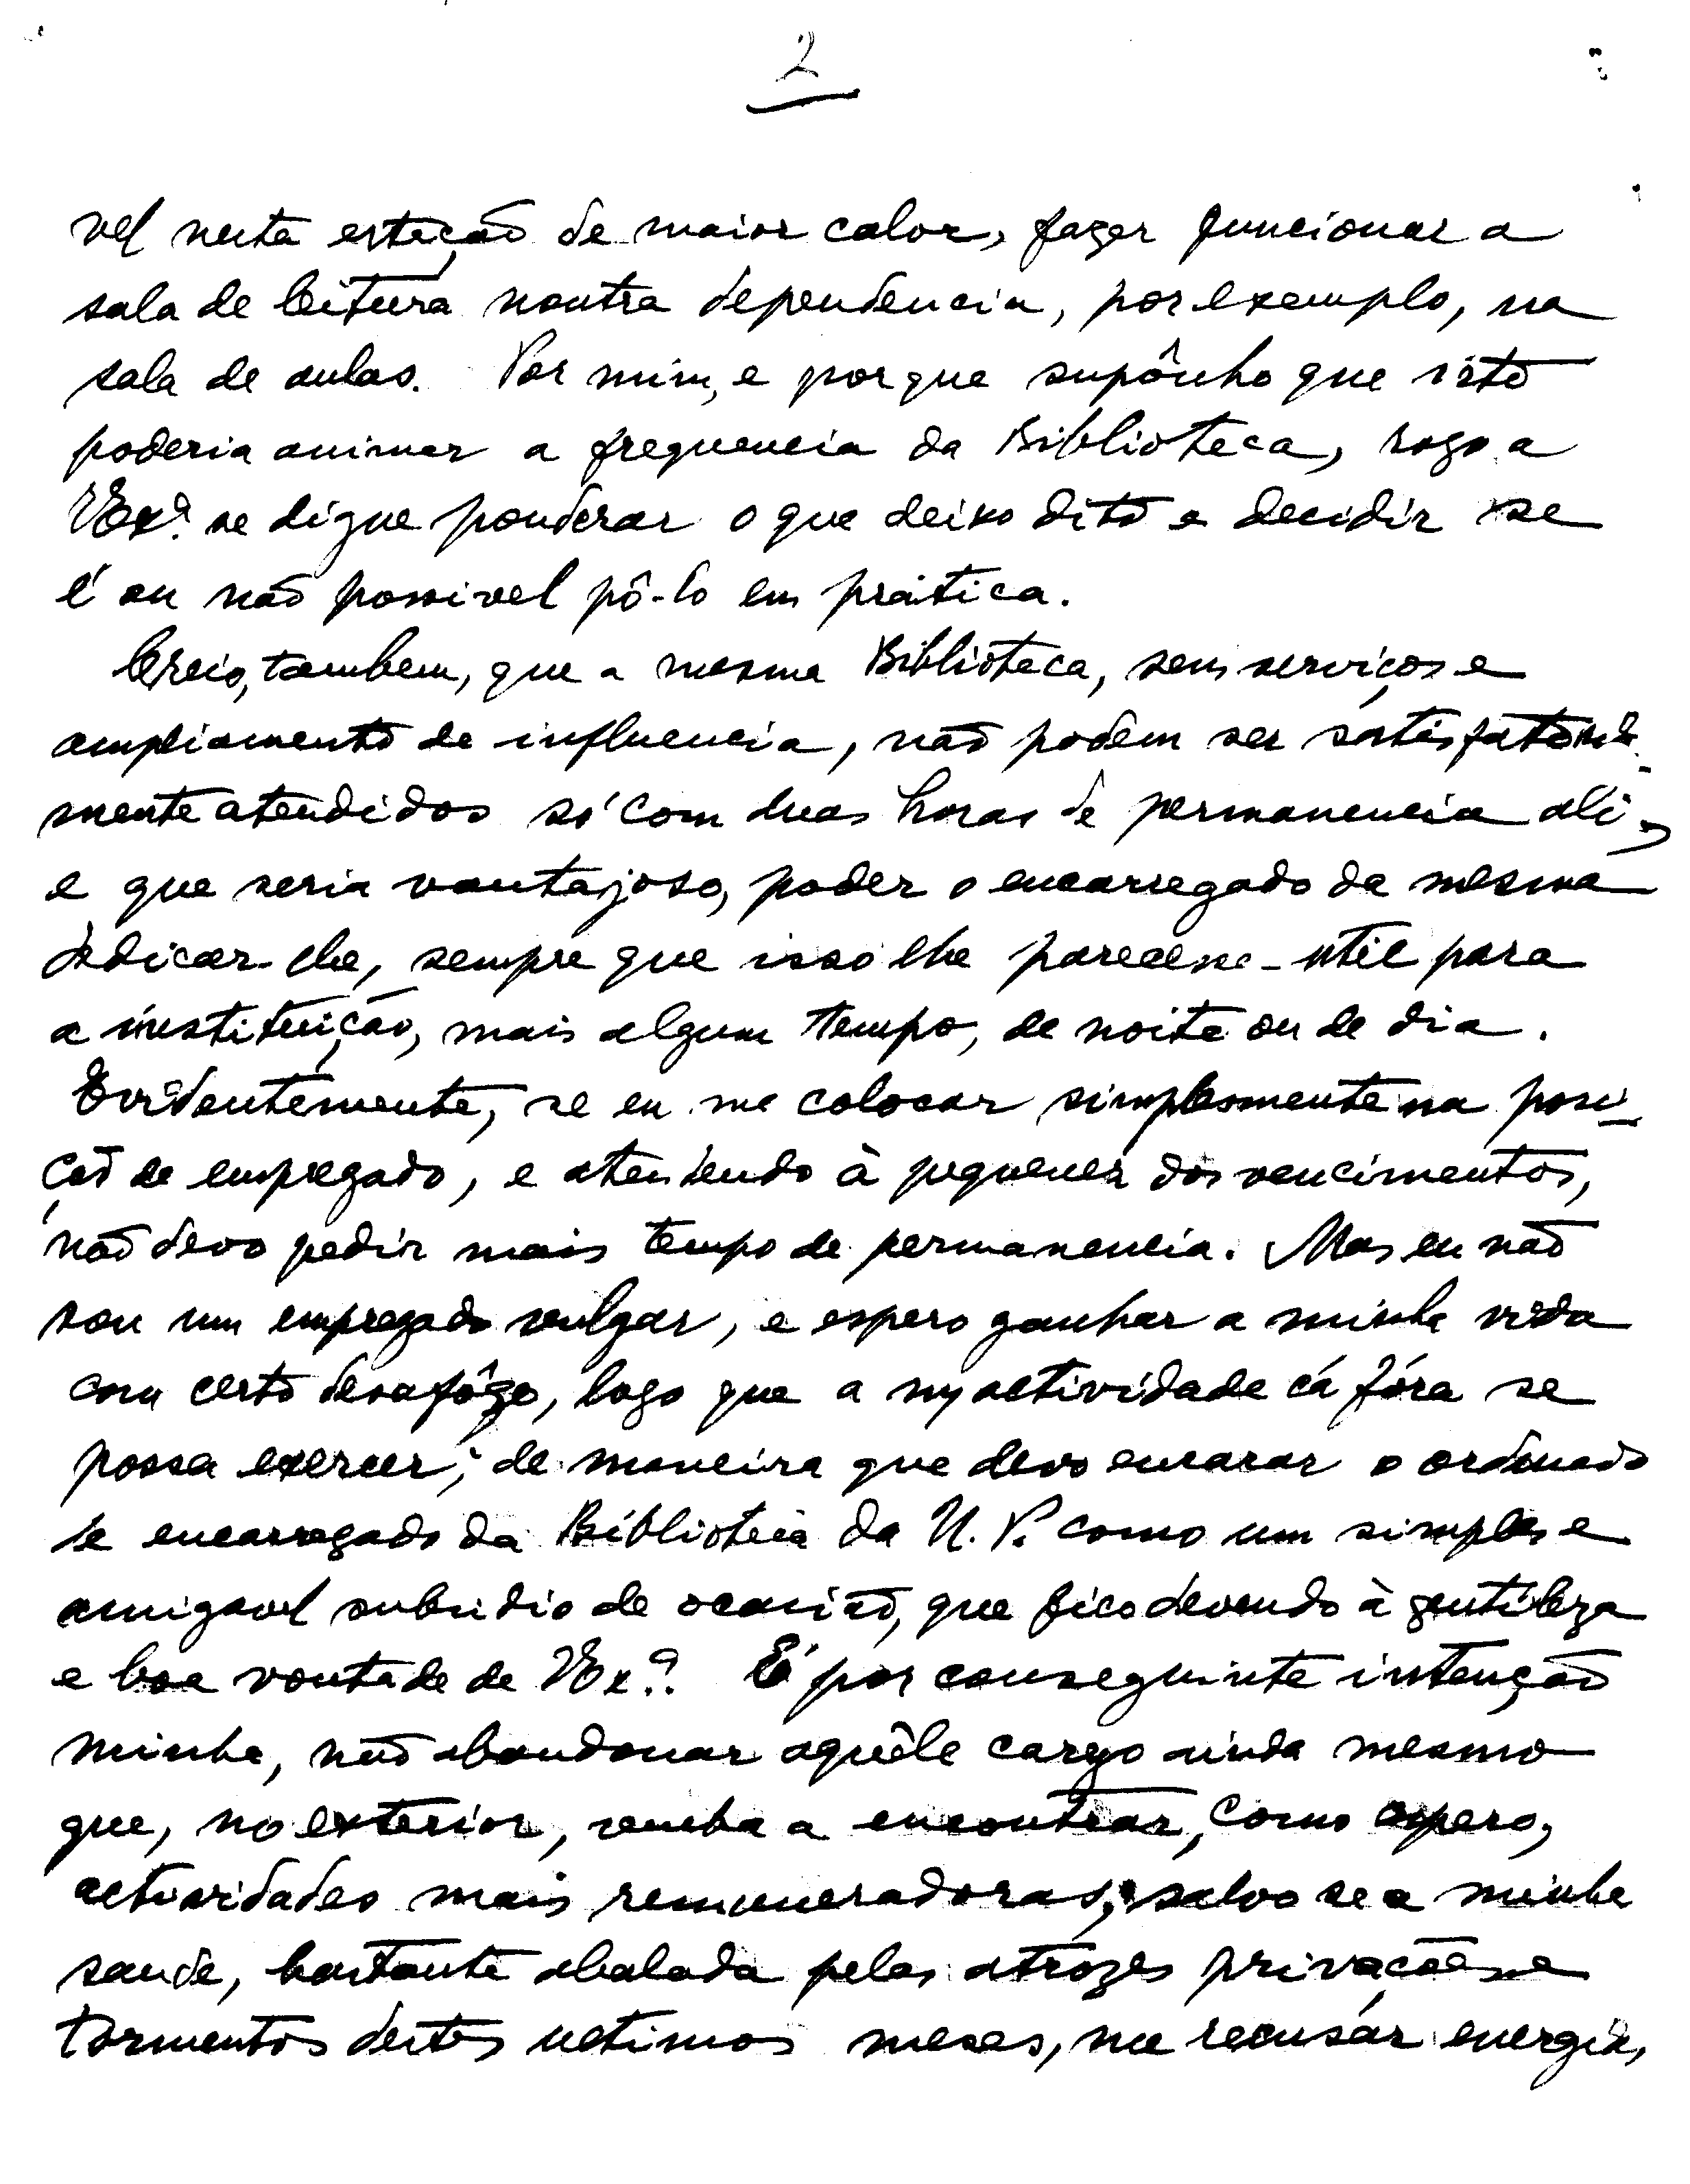 2
vel nesta estação de maior calor, fazer funcionar a
sala de leitura noutra dependencia, por exemplo, na
sala de aulas. Por mim, e porque supônho que isto
poderia animar a frequencia da Biblioteca, rogo a
VExª. se digne ponderar o que deixo dito e decidir se
é ou não possivel pô-lo em prática.
Creio, tambem, que a mesma Biblioteca, seus serviços e
ampliamento de influencia, não podem ser satisfatória-
mente atendidos só com duas horas de permanencia ali,
e que seria vantajoso, poder o encarregado da mesma
dedicar-lhe, sempre que isso lhe parecesse util para
a instituição, mais algum tempo, de noite ou de dia.
Evidentemente, se eu me colocar simplesmente na posi-
ção de empregado, e atendendo à pequenez dos vencimentos,
não devo pedir mais tempo de permanencia. Mas eu não
sou um empregado vulgar, e espero ganhar a minha vida
com certo desafôgo, logo que a mª actividade cá fóra se
possa exercer; de maneira que devo encarar o ordenado
de encarregado da Biblioteca da U. P. como um simples e
amigavel subsidio de ocasião, que fico devendo à gentileza
e boa vontade de VExª. É por conseguinte intenção
minha, não abandonar aquêle cargo ainda mesmo
que, no exterior, venha a encontrar, como espero,
actividades mais remuneradoras, salvo se a minha
saude, bastante abalada pelas atrozes privações e
tormentos destes ultimos meses, me recusár energia,